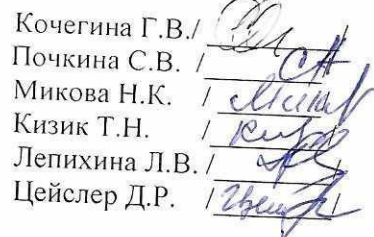 Кочегина Г.В./
Почкина С.В. /
Микова Н.К. /
Кизик Т.Н. /
Лепихина Л.В./
Цейслер Д.Р. /